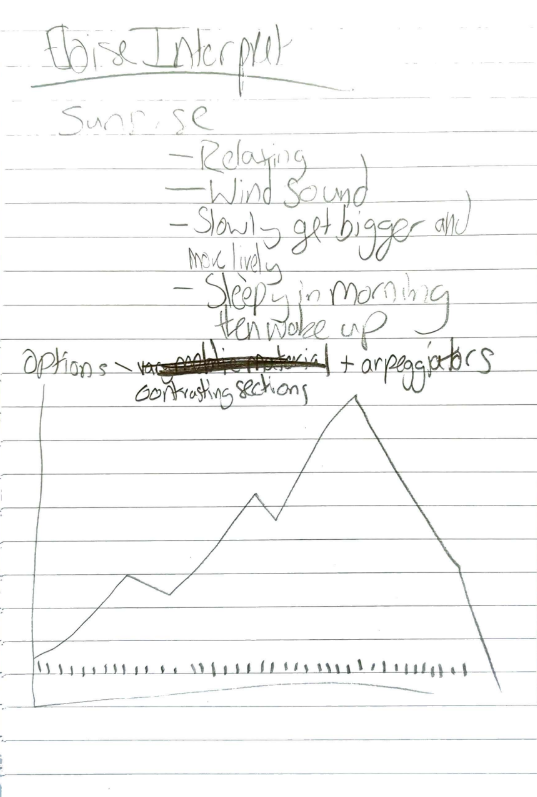 Eloise Interpret
Sunrise
- Relaxing
- Wind Sound
- Slowly get bigger and
more lively
- Sleepy in morning
then wake up
Options - + arpeggiators
contrasting sections